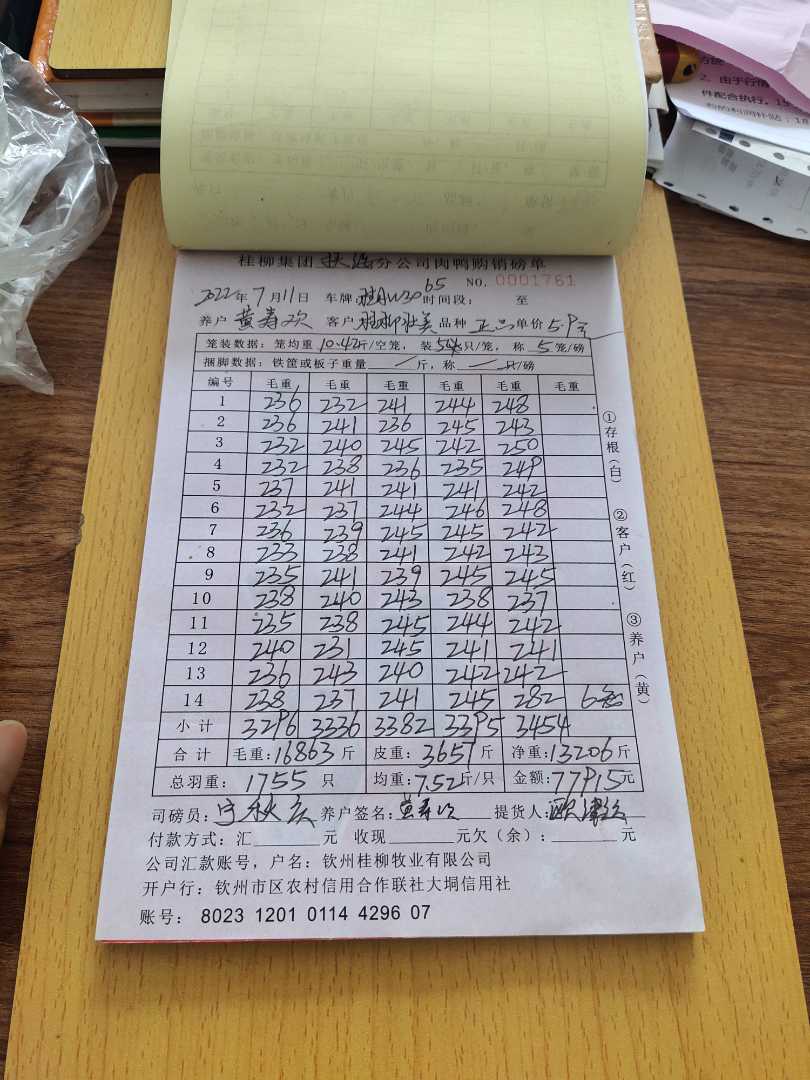 方能
2、由于行情
件配合执行。
桂柳集团 秋海 分公司肉鸭购销磅单
NO. 0001761
2022年7月11日 车牌:桂AW3065 时间段: 至
养户 黄寿欢 客户 桂柳壮美 品种 正品 单价 5.9元
笼装数据:笼均重 10.42 斤/空笼, 装 5 只/笼, 称 5 笼/磅
捆脚数据:铁筐或板子重量 / 斤,称 / 只/磅
编号 毛重 毛重 毛重 毛重 毛重 毛重
1 236 232 241 244 248
2 236 241 236 245 243
3 232 240 245 242 250
4 232 238 236 235 249
5 237 241 241 241 242
6 232 237 244 246 248
7 236 239 245 245 242
8 233 238 241 242 243
9 235 241 239 245 245
10 238 240 243 238 237
11 235 238 245 244 242
12 240 231 245 241 241
13 236 243 240 242 242
14 238 237 241 245 282 6笼
小计 3296 3336 3382 3395 3454
合计 毛重:16863 斤 皮重:3657 斤 净重:13206 斤
总羽重: 1755 只 均重:7.52 斤/只 金额:77915 元
司磅员:宁秋 养户签名:黄寿欢 提货人:
付款方式:汇 元 收现 元欠(余): 元
公司汇款账号,户名:钦州桂柳牧业有限公司
开户行:钦州市区农村信用合作联社大垌信用社
账号: 8023 1201 0114 4296 07
①存根(白)
②客户(红)
③养户(黄)